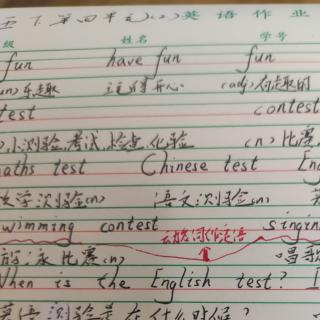 五下第四单元(2)英语作业
级 姓名 学号
fun have fun fun
乐趣 玩得开心 (adj)有趣的
test contest
小测验,考试,检查,化验 (n)比赛
maths test Chinese test Eng
数学测验(n) 语文测验(n) 英
wimming contest singin
动名词作定语
游泳比赛(n) 唱歌
When is the English test? I
英语测验是在什么时候?